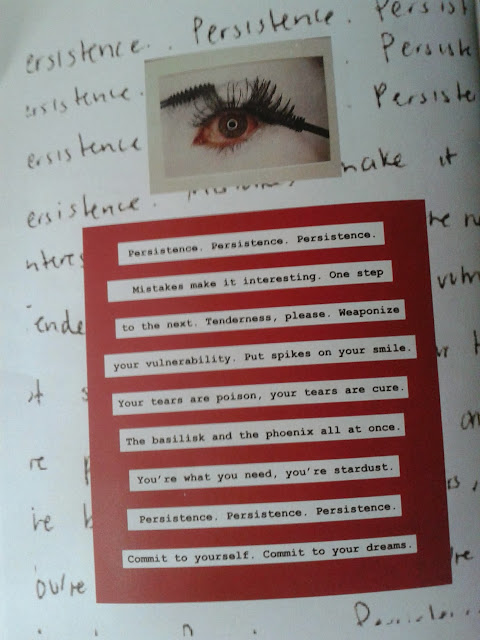 ersistence. Persistence. Persist
ersistence. Persiste
ersistence Persiste
ersistence. make it
Persistence. Persistence. Persistence.
Mistakes make it interesting. One step
to the next. Tenderness, please. Weaponize
your vulnerability. Put spikes on your smile.
Your tears are poison, your tears are cure.
The basilisk and the phoenix all at once.
You're what you need, you're stardust.
Persistence. Persistence. Persistence.
Commit to yourself. Commit to your dreams.